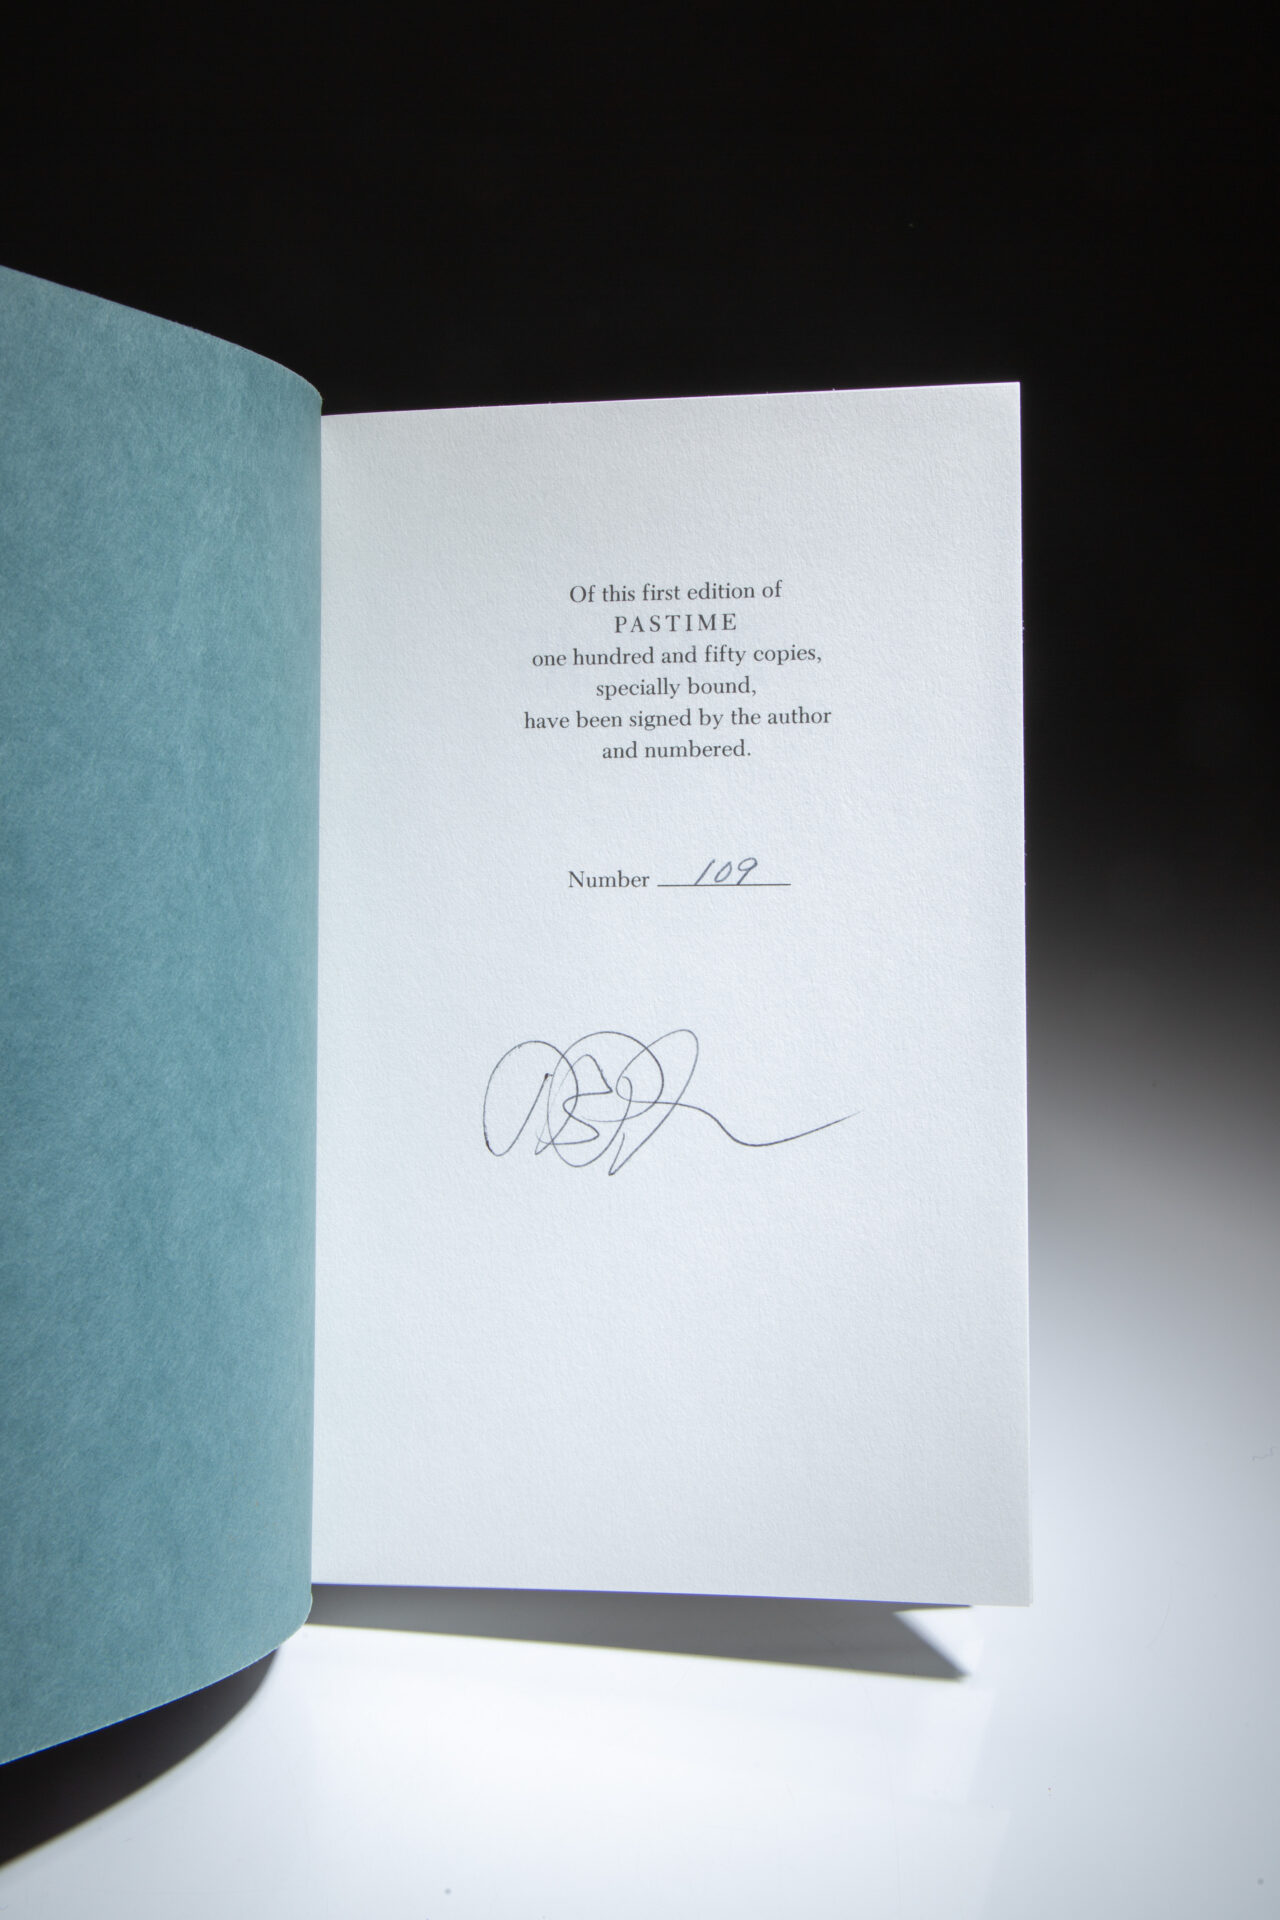 Of this first edition of
PASTIME
one hundred and fifty copies,
specially bound,
have been signed by the author
and numbered.
Number 109